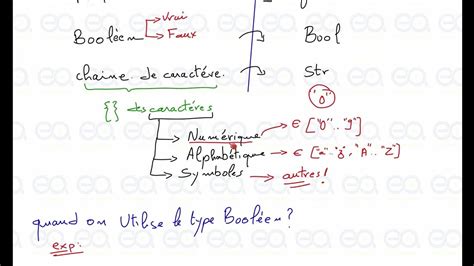 Vrai
Booléen → Faux → Bool
chaine de caractére. → Str
"0"
{} des caractères
→ Numérique → ∈ ["0".."9"]
→ Alphabétique → ∈ ["a".."z", "A".."Z"]
→ Symboles → autres!
quand on Utilise le type Booléen?
exp: